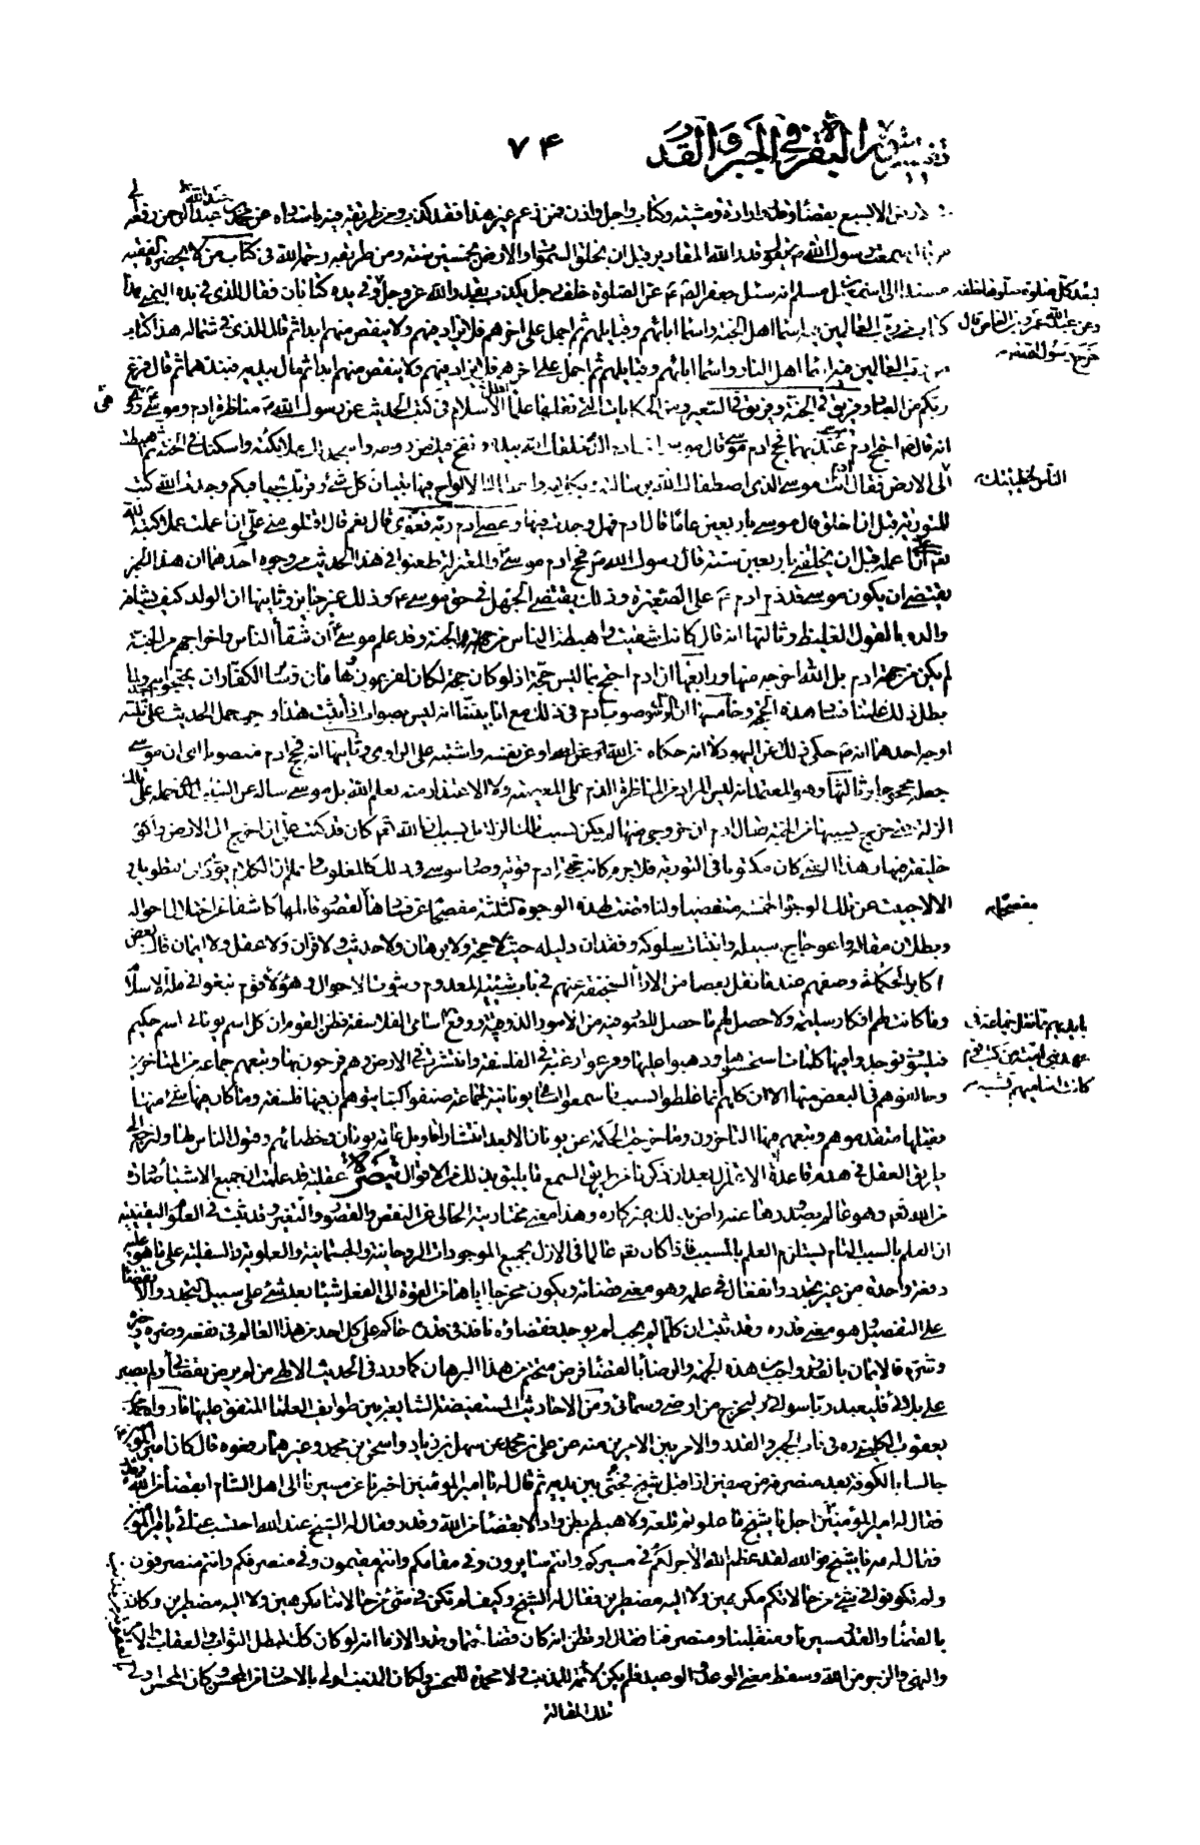 تفسير سورة البقرة في الجبر والقدر ٧٤
الا بسبع بقضاء وقدر وارادة ومشيئة وكتاب واجل واذن فمن زعم غير هذا فقد كذب ومن طريقه فيه باسناده عن محمد بن عبد الرحمن رفعه
سمعت رسول الله ص يقول قدر الله المقادير قبل ان يخلق السموات والارض بخمسين سنة ومن طريقه رحمه الله في كتاب من لا يحضره الفقيه
مسندا الى اسمعيل بن مسلم انه سئل جعفر الصادق ع عن الصلوة خلف رجل يكذب بقدر الله عز وجل وفي يده كتابان فقال للذي في يده اليمنى هذا
لبعد كل صلوة صلوها خلفه
وعن عبد الله عمر بن العاص قال
خرج رسول الله ص
كتاب من رب العالمين فيه اسماء اهل الجنة واسماء ابائهم وقبايلهم ثم اجمل على اخرهم فلا يزاد فيهم ولا ينقص منهم ابدا ثم قال للذي في شماله هذا كتاب
من رب العالمين فيه اسماء اهل النار واسماء ابائهم وقبايلهم ثم اجمل على اخرهم فلا يزاد فيهم ولا ينقص منهم ابدا ثم قال بيديه فنبذهما ثم قال فرغ
ربكم من العباد فريق في الجنة وفريق في السعير ومن الحكايات التي نقلها علماء الاسلام في كتب الحديث عن رسول الله ص مناظرة ادم وموسى
انه قال ص احتج ادم وموسى عند ربهما فحج ادم موسى قال موسى انت ادم الذي خلقك الله بيده ونفخ فيك من روحه واسجد لك ملائكته واسكنك في الجنة ثم اهبطت
الناس بخطيئتك
الى الارض فقال ادم انت موسى الذي اصطفاك الله برسالته وبكلامه واعطاك الالواح فيها تبيان كل شئ وقربك نجيا فبكم وجدت الله كتب
التورية قبل ان اخلق قال موسى باربعين عاما قال ادم فهل وجدت فيها وعصى ادم ربه فغوى قال نعم قال افتلومني على ان عملت عملا كتبه الله
على ان اعمله قبل ان يخلقني باربعين سنة قال رسول الله ص فحج ادم موسى والمعتزلة طعنوا في هذا الحديث من وجوه احدها ان هذا الخبر
يقتضي ان يكون موسى قد ذم ادم ع على الصغيرة وذلك يقتضي الجهل في حق موسى ع وذلك غير جايز وثانيها ان الولد كيف يشافه
والده بالقول الغليظ وثالثها انه قال انت اشقيت واهبطت الناس من الجنة وقد علم موسى ان شقاء الناس واخراجهم من الجنة
لم يكن من جهة ادم بل الله اخرجه منها ورابعها ان ادم احتج بما ليس حجة اذ لو كان حجة لكان لفرعون وهامان وسائر الكفار ان يحتجوا به ولما
بطل ذلك علمنا فساد هذه الحجة وخامسها ان الرسول صوب ادم في ذلك مع انا بينا انه ليس بصواب اذا ثبت هذا وجب حمل الحديث على ثلثة
اوجه احدها انه ص حكى ذلك عن اليهود لا انه حكاه عن الله او عن نفسه واشتبه على الراوي وثانيها انه فحج ادم منصوبا اي ان موسى
جعله محجوجا وثالثها وهو المعتمد انه ليس المراد من المناظرة الذم على المعصية ولا الاعتذار منه بعلم الله بل موسى ساله عن السبب الذي حمله على
الزلة حتى خرج بسببها من الجنة فقال ادم ان خروجي منها لم يكن بسبب تلك الزلة بل بسبب ان الله تع كان قد كتب علي ان اخرج الى الارض واكون
خليفة فيها وهذا المعنى كان مكتوبا في التورية فلا جرم كانت حجة ادم قوية وصار موسى في ذلك كالمغلوب
مفصلها
وبطلان مقاله واعوجاج سبيله حيث لا حجة ولا برهان ولا حديث ولا قران ولا عقل ولا ايمان قال بعض
اكابر الحكماء في وصفهم عند ما نقل بعضا من الاراء السخيفة عنهم في باب شيئية المعدوم وثبوت الاحوال وهؤلاء قوم نبغوا في ملة الاسلام
بايديهم مما نقل جماعة في
عهد بني امية من كتب قوم
كانت اساميهم تشبه
وما كانت لهم افكار سليمة ولا حصل لهم ما حصل للصوفية من الامور الذوقية ووقع اسامي الفلاسفة فظن القوم ان كل اسم يوناني اسم حكيم
فيلسوف فوجدوا فيها كلمات استحسنوها وذهبوا اليها وفرعوا رغبة في الفلسفة وانتشرت في الارض وهم فرحون بها وتبعهم جماعة من المتاخرين
وخالفوهم في البعض منها الا ان كلهم انما غلطوا بسبب ما سمعوا من اسامي يونانية لجماعة صنفوا كتبا يتوهم ان فيها فلسفة وما كان فيها شئ منها
فقبلها متقدموهم وتبعهم فيها المتاخرون وما خرجت الحكمة عن يونان الا بعد انتشار اقاويل عامة يونان وخطبائهم وقبول الناس لها ولنرجع الى
تبصرة عقلية قد علمت ان جميع الاشياء صادرة
من الله تع وهو عالم بصدورها عنه راض بذلك غير كاره وهذا معنى مختاريته الخالي عن النقص والقصور والتغير وقد ثبت في العلوم اليقينية
ان العلم بالسبب التام يستلزم العلم بالمسبب فاذا كان تع عالما في الازل بجميع الموجودات الروحانية والجسمانية والعلوية والسفلية على ما هو عليه
دفعة واحدة من غير تجدد وانفعال في علمه وهو معنى قضائه ويكون مخرجا اياها من القوة الى الفعل شيئا بعد شئ على سبيل التجدد والانقضاء
على التفصيل هو معنى قدره وقد ثبت ان كلما لم يجب لم يوجد فقضاؤه نافذ في قدره حاكم على كل احد من هذا العالم في نفعه وضره وخيره
وشره فالايمان بالقدر واجب من هذه الجهة والرضاء بالقضاء فرض متحتم من هذا البرهان كما ورد في الحديث الالهي من لم يرض بقضائي ولم يصبر
على بلائي فليعبد ربا سوائي وليخرج من ارضي وسمائي ومن الاحاديث المستفيضة الشايعة بين طوايف العلماء المتفق عليها ما رواه محمد بن
يعقوب الكليني ره في باب الجبر والقدر والامر بين الامرين منه عن علي بن محمد عن سهل بن زياد واسحق بن محمد وغيرهما رفعوه قال كان امير المؤمنين
جالسا بالكوفة بعد منصرفه من صفين اذ اقبل شيخ فجثى بين يديه ثم قال له يا امير المؤمنين اخبرنا عن مسيرنا الى اهل الشام ابقضاء من الله وقدر
فقال له امير المؤمنين اجل يا شيخ ما علوتم تلعة ولا هبطتم بطن واد الا بقضاء من الله وقدر فقال له الشيخ عند الله احتسب عنائي يا امير المؤمنين
فقال له مه يا شيخ فوالله لقد عظم الله الاجر لكم في مسيركم وانتم سايرون وفي مقامكم وانتم مقيمون وفي منصرفكم وانتم منصرفون
ولم تكونوا في شئ من حالاتكم مكرهين ولا اليه مضطرين فقال له الشيخ وكيف لم نكن في شئ من حالاتنا مكرهين ولا اليه مضطرين وكان
بالقضاء والقدر مسيرنا ومنقلبنا ومنصرفنا فقال له وتظن انه كان قضاء حتما وقدرا لازما انه لو كان كذلك لبطل الثواب والعقاب والامر
والنهي والزجر من الله وسقط معنى الوعد والوعيد فلم يكن لائمة للمذنب ولا محمدة للمحسن ولكان المذنب اولى بالاحسان من المحسن ولكان المحسن اولى
تلك مقالة